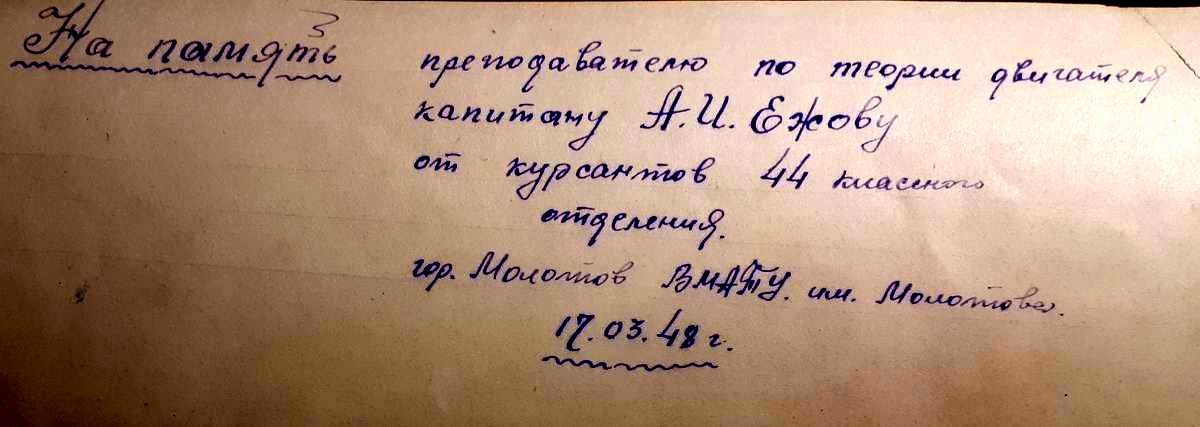 На память
преподавателю по теории двигателя
капитану А.И. Ежову
от курсантов 44 классного
отделения.
гор. Молотов ВМАТУ. им. Молотова.
17.03.48 г.